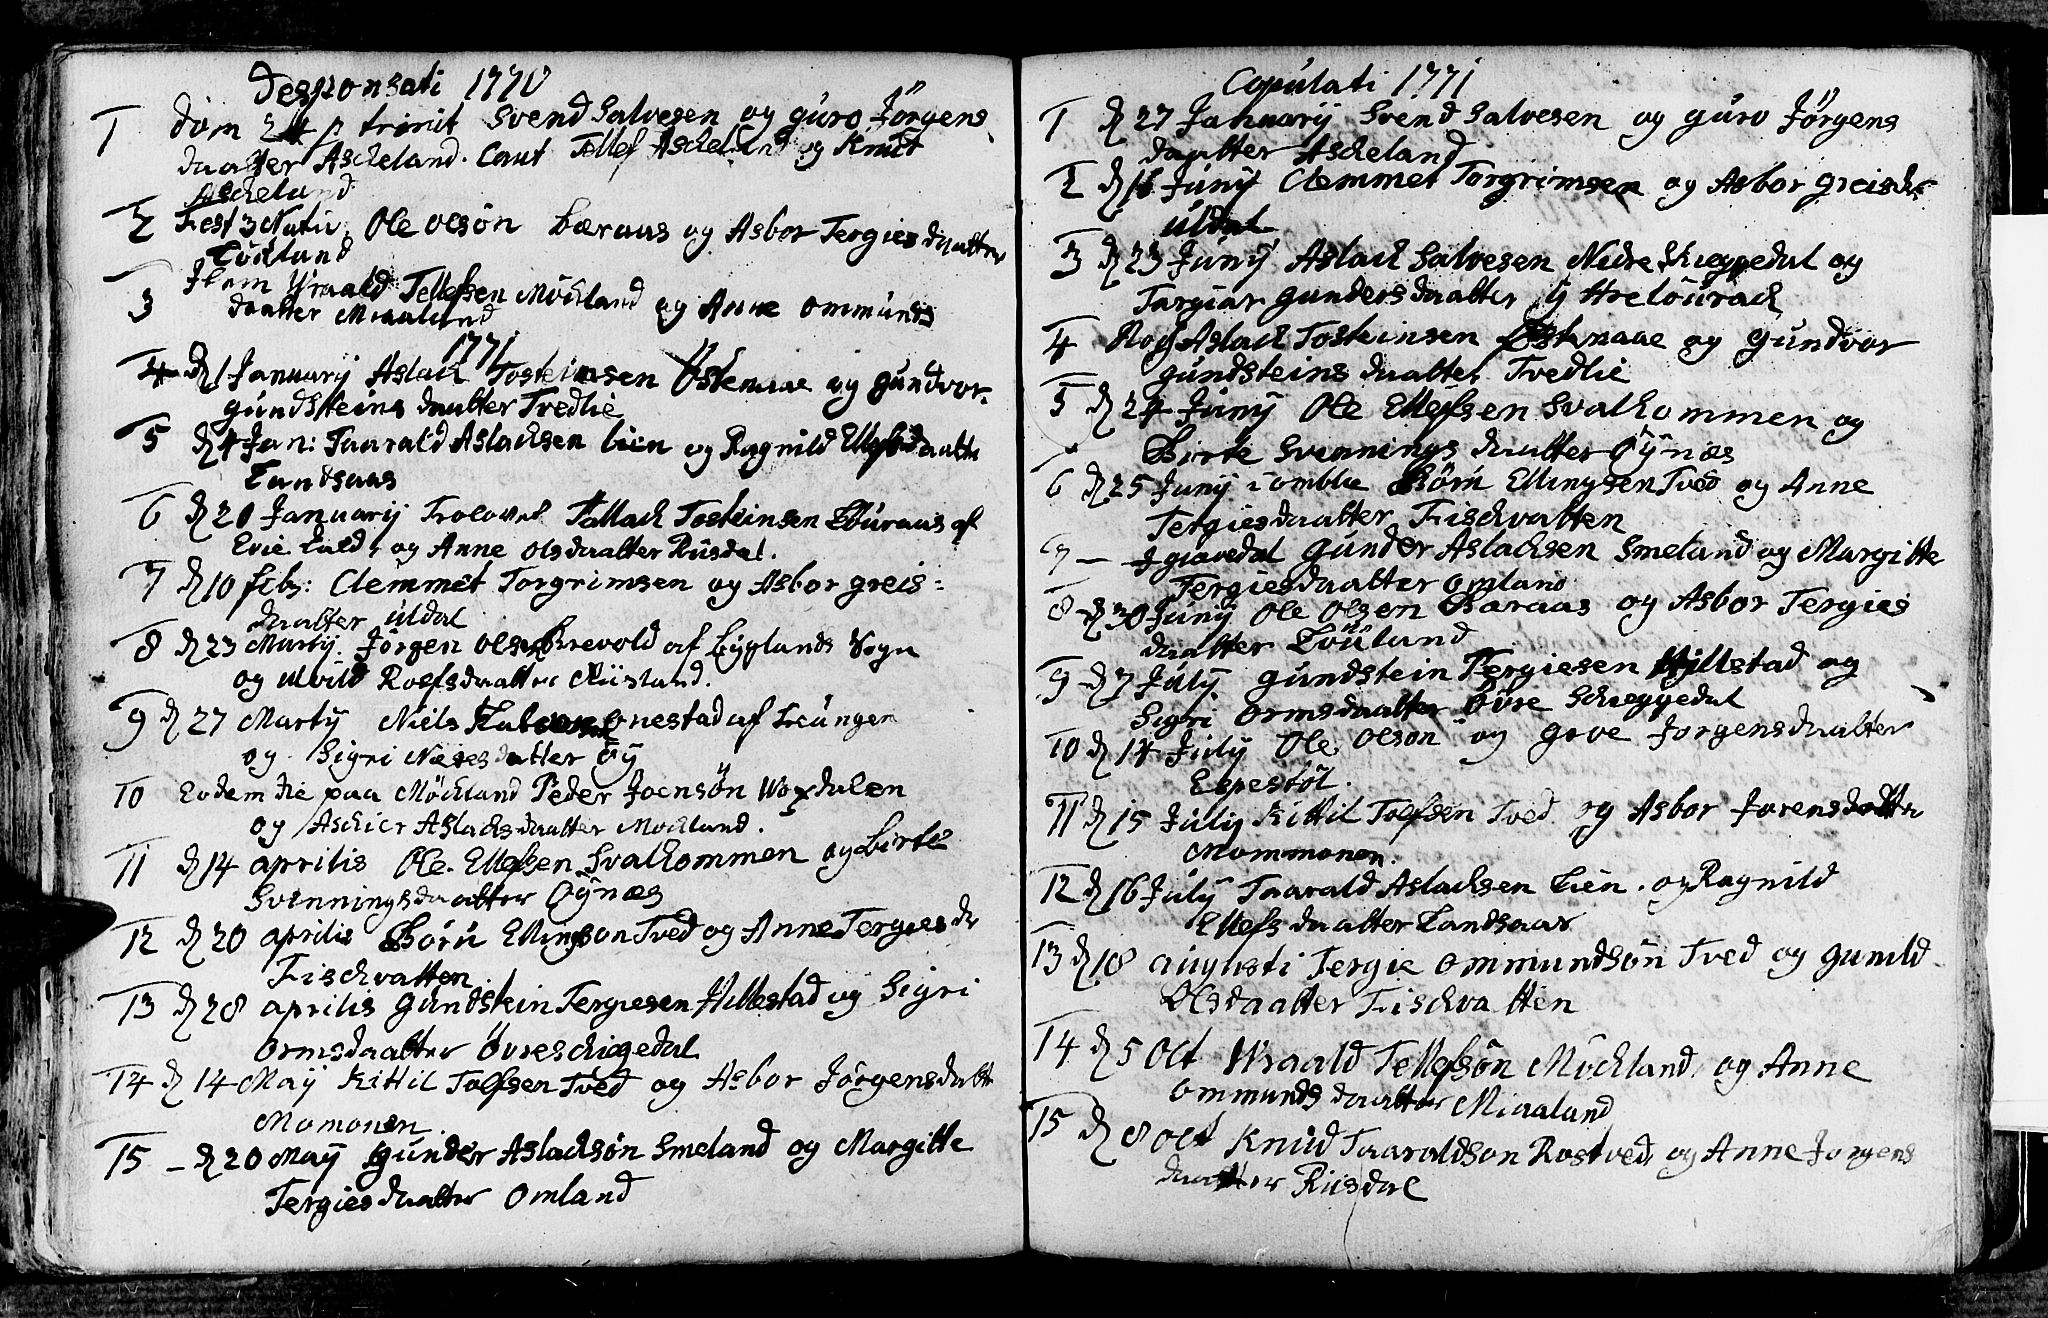 Desponsati 1770
1 Dom 24 p trinit Svend Salvesen og Guro Jörgens
daatter Ascheland. Caut Tellef Ascheland og Knut
Ascheland
2 Fest 3 Nativ. Ole Olsön Bæraas og Asbor Tergies daatter
Löüland
3 Item Wraald Tellefsen Möchland og Anne Ommunds
daatter Miaaland
1771
4 d 1 Januarij Aslach Tosteinsen Östenaae og Gundvor
Gundsteins daatter Tvedlie
5 d 4 Jan: Taarald Aslachsen Lien og Ragnild Ellefsdaatter
Landsaas
6 d 20 Januarij Trolovet Tallach Tosteinsen af
Evie og Anne Olsdaatter Riisdal.
7 d 10 feb: Clemmet Torgrimsen og Asbor Greis=
daatter Uldal
8 d 23 Martij. Jörgen Olsen af Byglands Sogn
og Alvild Roefsdaatter Riisland.
9 d 27 Martij Niels Onestad af Treungen
og Sigri Næsesdaatter Öÿ
10 Eodem die paa Möchland Peder Joensön Woxdalen
og Aschier Aslachsdaatter Mochland.
11 d 14 aprilis Ole. Ellefsen Svalkommen og Birte
Svenningsdaatter Öynæs
12 d 20 aprilis Börü Ellingson Tved og Anne Tergies dr
Fischvatten
13 d 28 aprilis Gundstein Tergiesen Hillestad og Sigri
Ormsdaatter Övreschiegedal
14 d 14 Maÿ Kittil Tolfsen Tved og Asbor Jörgensdaatt
Momonen.
15 – d 20 Maÿ Gunder Aslachsön Smeland og Margitte
Tergiesdaatter Omland
Copulati 1771
1 d 27 Januarij Svend Salvesen og Guro Jörgens
daatter Ascheland
2 d 16 Junij Clemmet Torgrimsen og Asbor Greisdr
Uldal
3 d 23 Junij Aslach Salvesen Nedre Skieggedal og
Targiær Gundersdaatter
4 Aslach Tosteinsen Östenaae og Gundvor
Gundsteins daatter Tvedlie
5 d 24 Junij Ole Ellefsen Svalkommen og
Birte Svennings daatter Öynæs
6 d 25 Junij i omblie Börü Ellingsen Tved og Anne
Tergiesdaatter Fischvatten
7 – Igiavedal Gunder Aslachsen Smeland og Margitte
Tergiesdaatter Omland
8 d 30 Junij Ole Olsen Baraas og Asbor Tergies
daatter Löüland
9 d 7 Julij Gundstein Tergiesen Hillstad og
Sigri Ormsdaatter Övre Schieggedal
10 d 14 Julij Ole Olson og Gove Jorgensdaatter
Espestöl.
11 d 15 Julij Kittil Tolfsen Tved og Asbor Jorensdaatter
Mommonen.
12 d 16 Julij Taarald Aslachsen Lien. og Ragnild
Ellefs daatter Landsaas
13 d 18 augusti Tergie Ommundsön Tved og Gunild
Olsdaatter Fischvatten
14 d 5 Oct Wraald Tellefsön Möchland, og Anne
Ommunds daatter Miaaland
15 d 8 Oct Knud Taaraldson Rostved og Anne Jorgens
daatter Riisdal